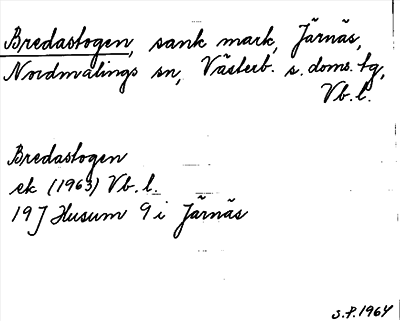 Bredastogen, sank mark, Järnäs,
Nordmalings sn, Västerb. s. doms. tg,
Vb. l.
Bredastogen
ek (1963) Vb. l.
19J Husum 9 i Järnäs
S.P. 1964